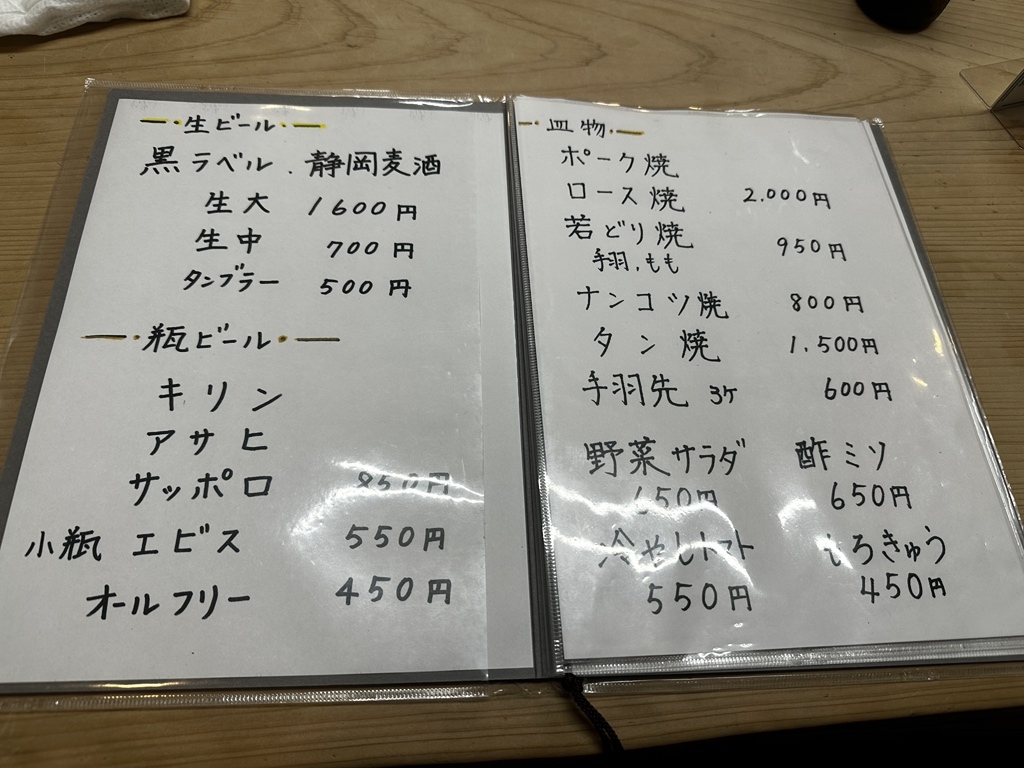 生ビール
黒ラベル．静岡麦酒
生大 1600円
生中 700円
タンブラー 500円
瓶ビール
キリン
アサヒ
サッポロ 850円
小瓶 エビス 550円
オールフリー 450円
皿物
ポーク焼
ロース焼 2.000円
若どり焼 950円
手羽．もも
ナンコツ焼 800円
タン焼 1.500円
手羽先 3ケ 600円
野菜サラダ 酢ミソ
650円 650円
冷やしトマト もろきゅう
550円 450円